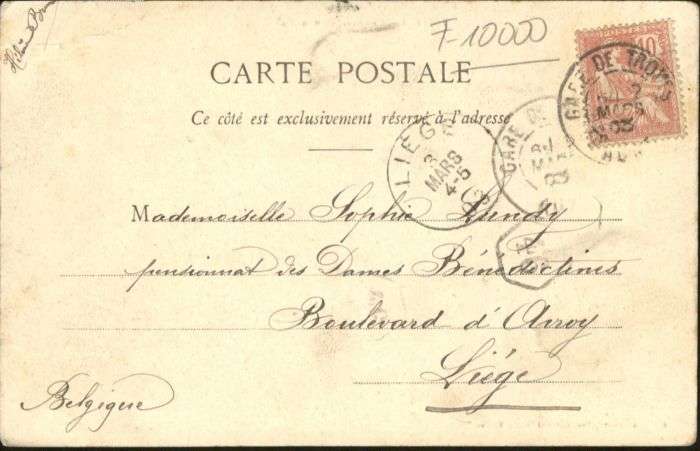 F-10000
10c
CARTE POSTALE
Ce côté est exclusivement réservé à l'adresse
GARE DE TROYES
MARS
03
GARE DE
LIÉGE
3
MARS
4-5
03
Mademoiselle Sophie Lundy
pensionnat des Dames Bénédictines
Boulevard d'Avroy
Liége
Belgique